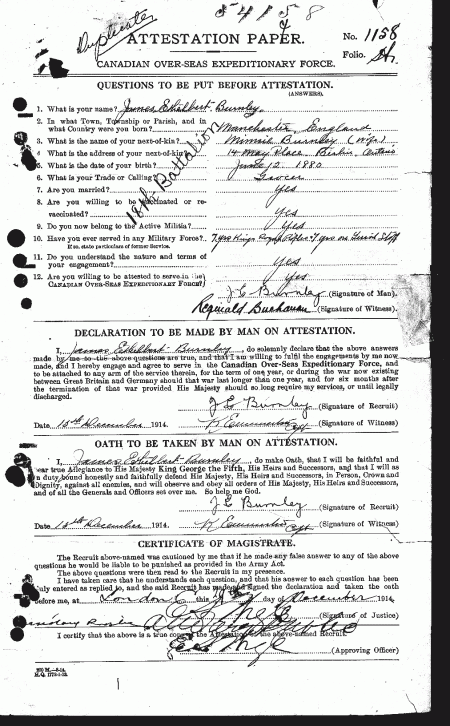 Duplicate
5 4 1 5 8
ATTESTATION PAPER.
No. 1158
Folio.
CANADIAN OVER-SEAS EXPEDITIONARY FORCE.
QUESTIONS TO BE PUT BEFORE ATTESTATION.
(ANSWERS).
18th Battalion
1. What is your name? James Ethelbert Burnley
2. In what Town, Township or Parish, and in what Country were you born? Manchester, England
3. What is the name of your next-of-kin? Minnie Burnley (Wife)
4. What is the address of your next-of-kin? 14 May Place. Berlin. Ontario
5. What is the date of your birth? June 12 1880
6. What is your Trade or Calling? Grocer
7. Are you married? Yes
8. Are you willing to be vaccinated or re-vaccinated? Yes
9. Do you now belong to the Active Militia? Yes
10. Have you ever served in any Military Force? 7 yrs Kings
If so, state particulars of former Service.
11. Do you understand the nature and terms of your engagement? Yes
12. Are you willing to be attested to serve in the CANADIAN OVER-SEAS EXPEDITIONARY FORCE? Yes
J E Burnley (Signature of Man).
Reginald Buchanan (Signature of Witness).
DECLARATION TO BE MADE BY MAN ON ATTESTATION.
I, James Ethelbert Burnley, do solemnly declare that the above answers
made by me to the above questions are true, and that I am willing to fulfil the engagements by me now
made, and I hereby engage and agree to serve in the Canadian Over-Seas Expeditionary Force, and
to be attached to any arm of the service therein, for the term of one year, or during the war now existing
between Great Britain and Germany should that war last longer than one year, and for six months after
the termination of that war provided His Majesty should so long require my services, or until legally
discharged.
J E Burnley (Signature of Recruit)
Date December 1914. (Signature of Witness)
OATH TO BE TAKEN BY MAN ON ATTESTATION.
I, James Ethelbert Burnley, do make Oath, that I will be faithful and
bear true Allegiance to His Majesty King George the Fifth, His Heirs and Successors, and that I will as
in duty bound honestly and faithfully defend His Majesty, His Heirs and Successors, in Person, Crown and
Dignity, against all enemies, and will observe and obey all orders of His Majesty, His Heirs and Successors,
and of all the Generals and Officers set over me. So help me God.
J E Burnley (Signature of Recruit)
Date December 1914. (Signature of Witness)
CERTIFICATE OF MAGISTRATE.
The Recruit above-named was cautioned by me that if he made any false answer to any of the
above questions he would be liable to be punished as provided in the Army Act.
The above questions were then read to the Recruit in my presence.
I have taken care that he understands each question, and that his answer to each question has been
duly entered as replied to, and the said Recruit has made and signed the declaration and taken the oath
before me, at London this day of December 1914
(Signature of Justice)
I certify that the above is a true copy of the Attestation of the above-named Recruit.
(Approving Officer)